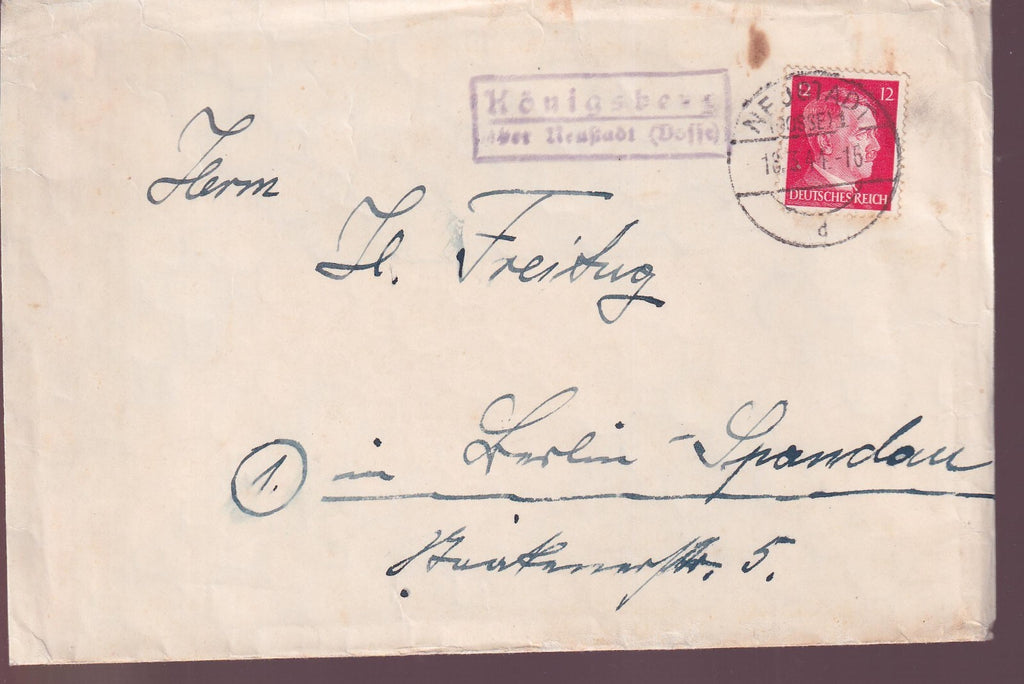 Königsberg
über Neustadt (Dosse)
NEUSTADT
(DOSSE)
-15
d
12 12
DEUTSCHES REICH
Herrn
H. Freitag
1. in Berlin-Spandau
Staakenerstr. 5.